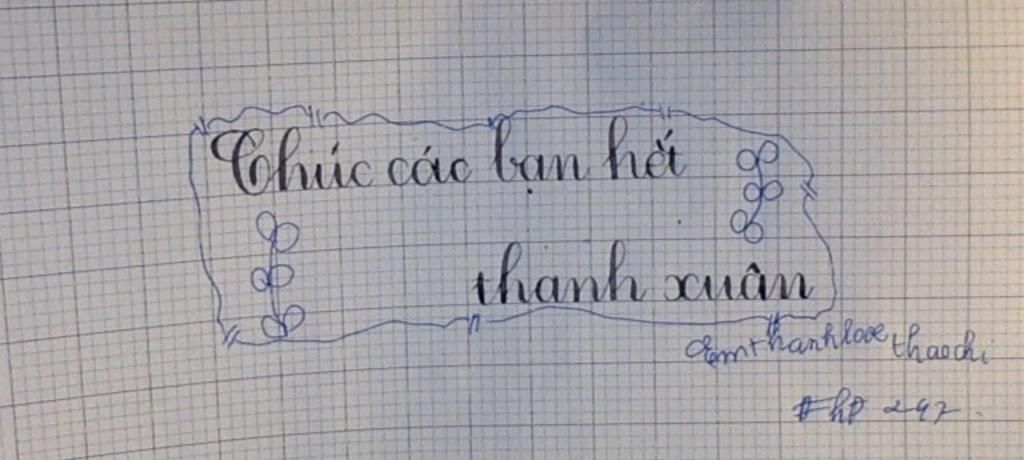 Chúc các bạn hết
thanh xuân
thanhlove thaochi
#hp 247